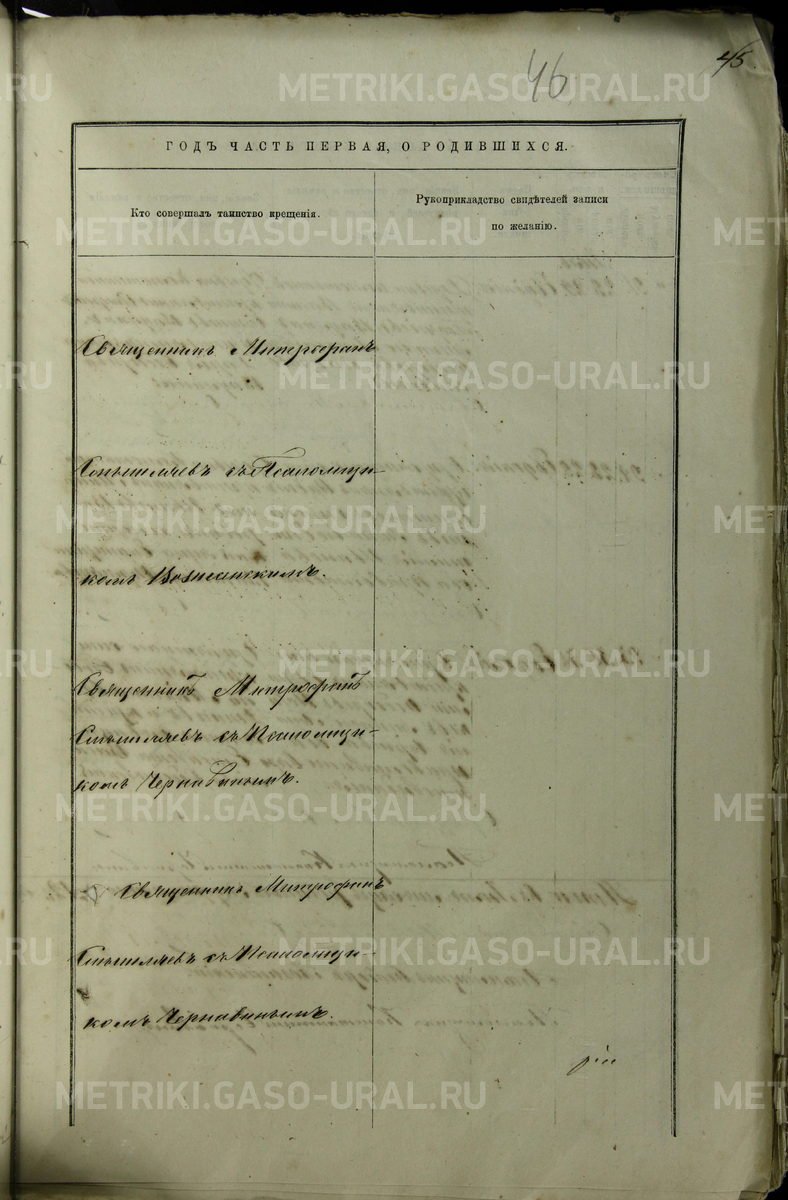 46
45.
ГОДЪ ЧАСТЬ ПЕРВАЯ, О РОДИВШИХСЯ.
Кто совершалъ таинство крещенія.
Рукоприкладство свидѣтелей записи
по желанію.
Священникъ Митрофанъ
съ Псаломщи-
комъ Вознесенскимъ.
Священникъ Митрофанъ
съ Псаломщи-
комъ Чернавинымъ.
Священникъ Митрофанъ
съ Псаломщи-
комъ Чернавинымъ.
METRIKI.GASO-URAL.RU